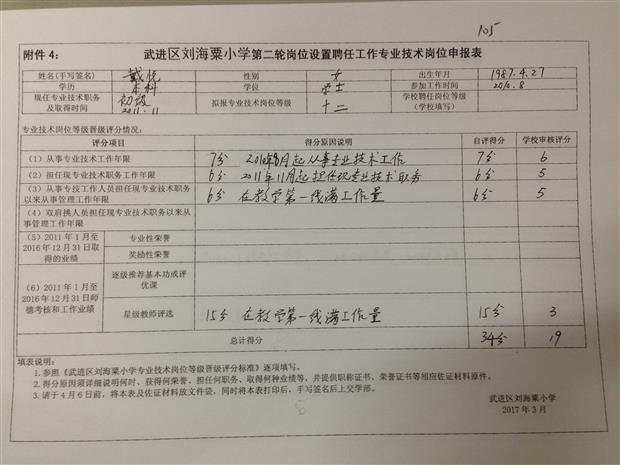 105
附件 4： 武进区刘海粟小学第二轮岗位设置聘任工作专业技术岗位申报表
姓名(手写签名) 戴悦 性别 女 出生年月 1987.4.27
学历 本科 学位 学士 参加工作时间 2010.8
现任专业技术职务及取得时间 初级 2011.11 拟报专业技术岗位等级 十二 学校聘任岗位等级（学校填写）
专业技术岗位等级晋级评分情况：
评分项目 得分原因说明 自评得分 学校审核评分
（1）从事专业技术工作年限 7分 2010年8月起从事专业技术工作 7分 6
（2）担任现专业技术职务工作年限 6分 2011年11月起担任现专业技术职务 6分 5
（3）从事专技工作人员担任现专业技术职务以来从事管理工作年限 6分 在教学第一线满工作量 6分 5
（4）双肩挑人员担任现专业技术职务以来从事管理工作年限
（5）2011 年 1 月至 2016 年 12 月 31 日取得的业绩 专业性荣誉
奖励性荣誉
（6）2011 年 1 月至 2016 年 12 月 31 日师德考核和工作业绩 逐级推荐基本功或评优课
星级教师评选 15分 在教学第一线满工作量 15分 3
总计得分 34分 19
填表说明：
1.参照《武进区刘海粟小学专业技术岗位等级晋级评分标准》逐项填写。
2.得分原因须详细说明何时、获得何荣誉、担任何职务、取得何种业绩等，并提供职称证书、荣誉证书等相应佐证材料原件。
3.请于 4 月 6 日前，将本表及佐证材料放文件袋，同时将本表打印后，手写签名后上交学部。
武进区刘海粟小学
2017 年 3 月